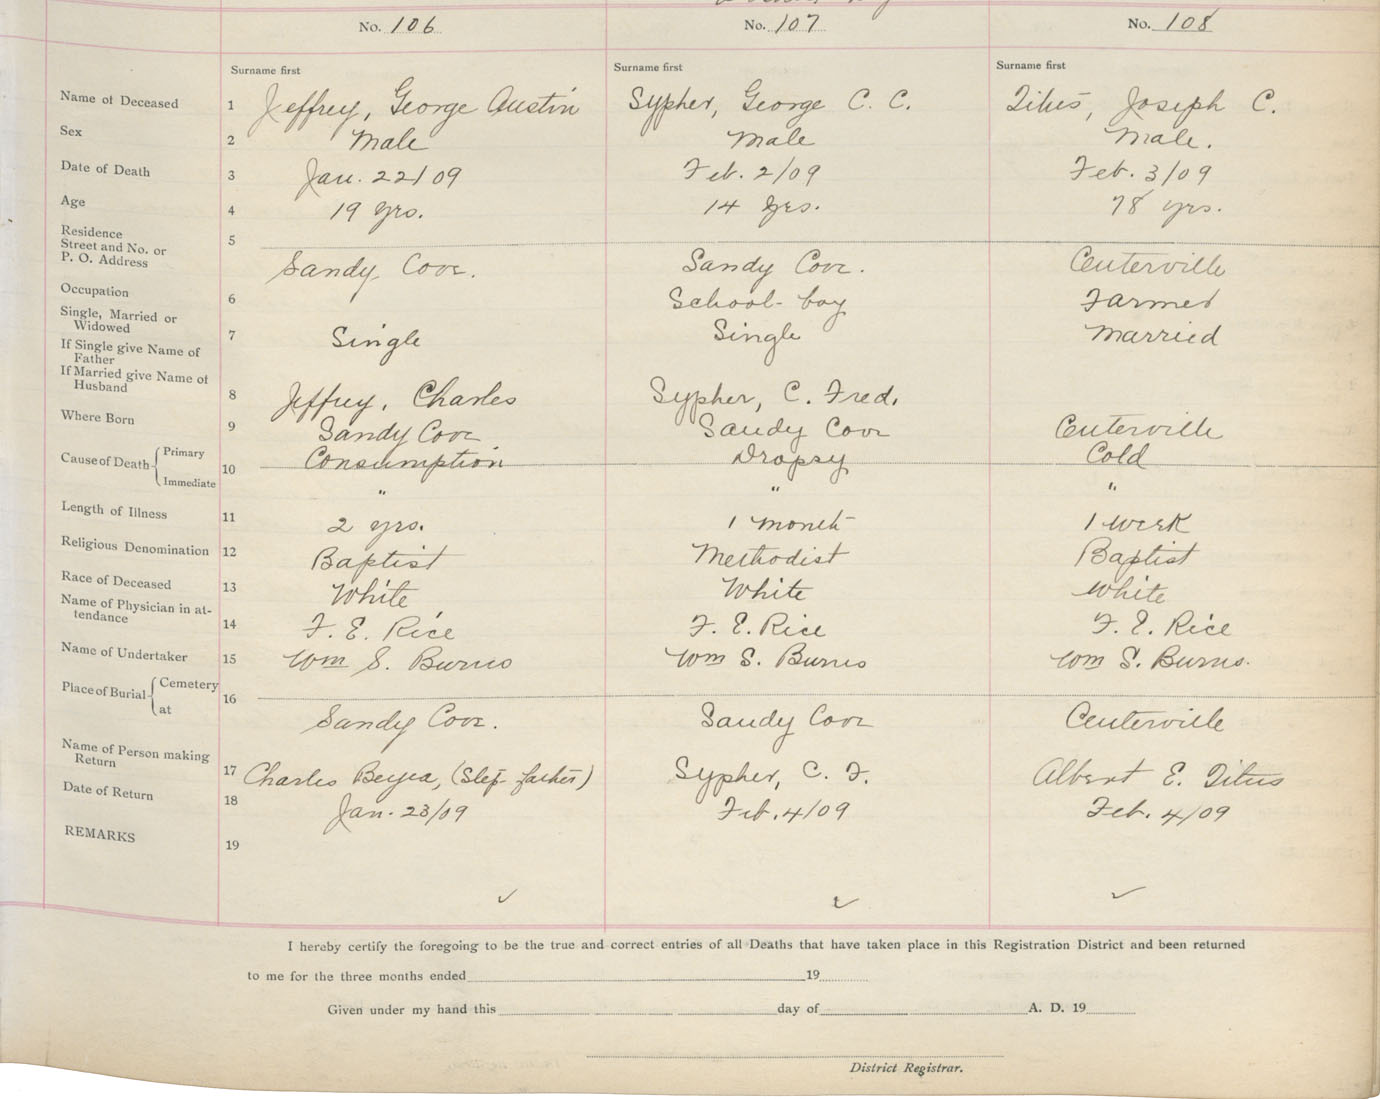 No. 106 No. 107 No. 108
Surname first Surname first Surname first
Name of Deceased 1 Jeffrey, George Austin Sypher, George C. C. Titus, Joseph C.
Sex 2 Male Male Male.
Date of Death 3 Jan. 22/09 Feb. 2/09 Feb. 3/09
Age 4 19 yrs. 14 yrs. 78 yrs.
Residence
Street and No. or
P. O. Address 5 Sandy Cove. Sandy Cove. Centerville
Occupation 6 School-boy Farmer
Single, Married or
Widowed 7 Single Single Married
If Single give Name of
Father
If Married give Name of
Husband 8 Jeffrey, Charles Sypher, C. Fred.
Where Born 9 Sandy Cove Sandy Cove Centerville
Cause of Death { Primary 10 Consumption Dropsy Cold
Immediate " " "
Length of Illness 11 2 yrs. 1 month 1 week
Religious Denomination 12 Baptist Methodist Baptist
Race of Deceased 13 White White White
Name of Physician in at-
tendance 14 F. E. Rice F. E. Rice F. E. Rice
Name of Undertaker 15 Wm S. Burns Wm S. Burns Wm S. Burns.
Place of Burial { Cemetery 16
at Sandy Cove. Sandy Cove Centerville
Name of Person making
Return 17 Charles Beyea, (Step-father) Sypher, C. F. Albert E. Titus
Date of Return 18 Jan. 23/09 Feb. 4/09 Feb. 4/09
REMARKS 19
I hereby certify the foregoing to be the true and correct entries of all Deaths that have taken place in this Registration District and been returned
to me for the three months ended 19
Given under my hand this day of A. D. 19
District Registrar.